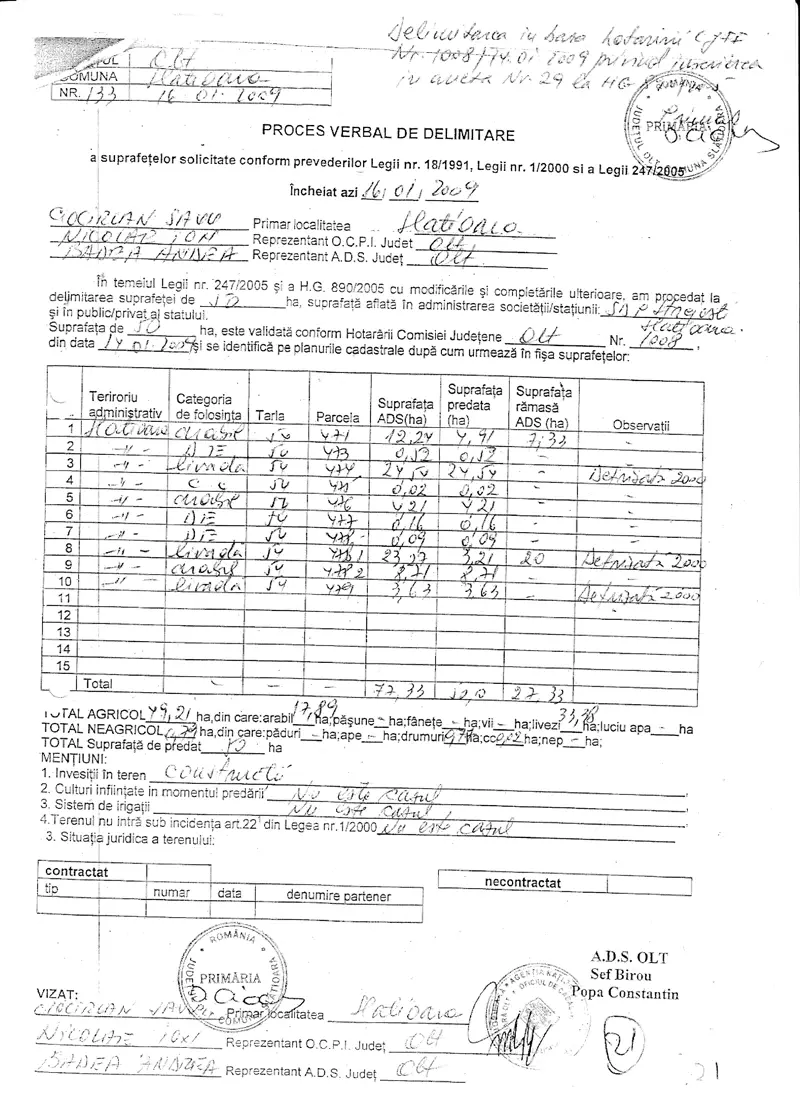 Delimitarea in baza hotararii CJFF
Nr. 1008/14.01.2009 privind inscrierea
in anexa Nr. 29 la HG
JUDEȚUL Olt
COMUNA Slatioara
NR. 133 16.01.2009
ROMÂNIA
PRIMĂRIA
JUDEȚUL OLT COMUNA SLATIOARA
PROCES VERBAL DE DELIMITARE
a suprafețelor solicitate conform prevederilor Legii nr. 18/1991, Legii nr. 1/2000 si a Legii 247/2005
Încheiat azi 16.01.2009
CIOCIRLAN SAVU Primar localitatea Slatioara
NICOLAE ION Reprezentant O.C.P.I. Județ Olt
BADEA ANDREA Reprezentant A.D.S. Județ Olt
În temeiul Legii nr. 247/2005 și a H.G. 890/2005 cu modificările și completările ulterioare, am procedat la
delimitarea suprafeței de 50 ha, suprafață aflată în administrarea societății/stațiunii: SAP
și în public/privat al statului. Slatioara.
Suprafața de 50 ha, este validată conform Hotarârii Comisiei Județene Olt Nr. 1008
din data 14.01.2009 și se identifică pe planurile cadastrale după cum urmează în fișa suprafețelor:
Teriroriu administrativ Categoria de folosința Tarla Parcela Suprafața ADS(ha) Suprafața predata (ha) Suprafața rămasă ADS (ha) Observații
1 Slatioara arabil 54 471 12,24 4,91 7,33 -
2 -"- DE 54 473 0,52 0,52 - -
3 -"- livada 54 474 24,54 24,54 - Defrisată 2000
4 -"- C C 54 0,02 0,02 - -
5 -"- arabil 54 476 4,21 4,21 - -
6 -"- DE 54 477 0,16 0,16 - -
7 -"- DE 54 478 0,09 0,09 - -
8 -"- livadă 54 478/1 23,21 3,21 20 Defrisată 2000
9 -"- arabil 54 478/2 8,71 8,71 -
10 -"- livada 54 479 3,63 3,63 - Defrisată 2000
11
12
13
14
15
Total - - - 77,33 50,0 27,33
TOTAL AGRICOL 49,21 ha,din care:arabil 17,89 ha;pășune - ha;fânețe - ha;vii - ha;livezi 33,38 ha;luciu apa - ha
TOTAL NEAGRICOL 0,79 ha,din care:păduri - ha;ape - ha;drumuri 0,77 ha;cc 0,02 ha;nep - ha;
TOTAL Suprafață de predat 50 ha
MENȚIUNI:
1. Invesiții în teren constructii
2. Culturi infiintate in momentul predării Nu este cazul
3. Sistem de irigații Nu este cazul
4.Terenul nu intră sub incidența art.22¹ din Legea nr.1/2000 Nu este cazul
3. Situația juridica a terenului:
contractat
tip numar data denumire partener
necontractat
A.D.S. OLT
Sef Birou
Popa Constantin
ROMÂNIA
PRIMĂRIA
JUDEȚUL COMUNA SLATIOARA
VIZAT:
CIOCIRLAN SAVU Primar localitatea Slatioara
NICOLAE ION Reprezentant O.C.P.I. Județ Olt
BADEA ANDREA Reprezentant A.D.S. Județ Olt
21
21